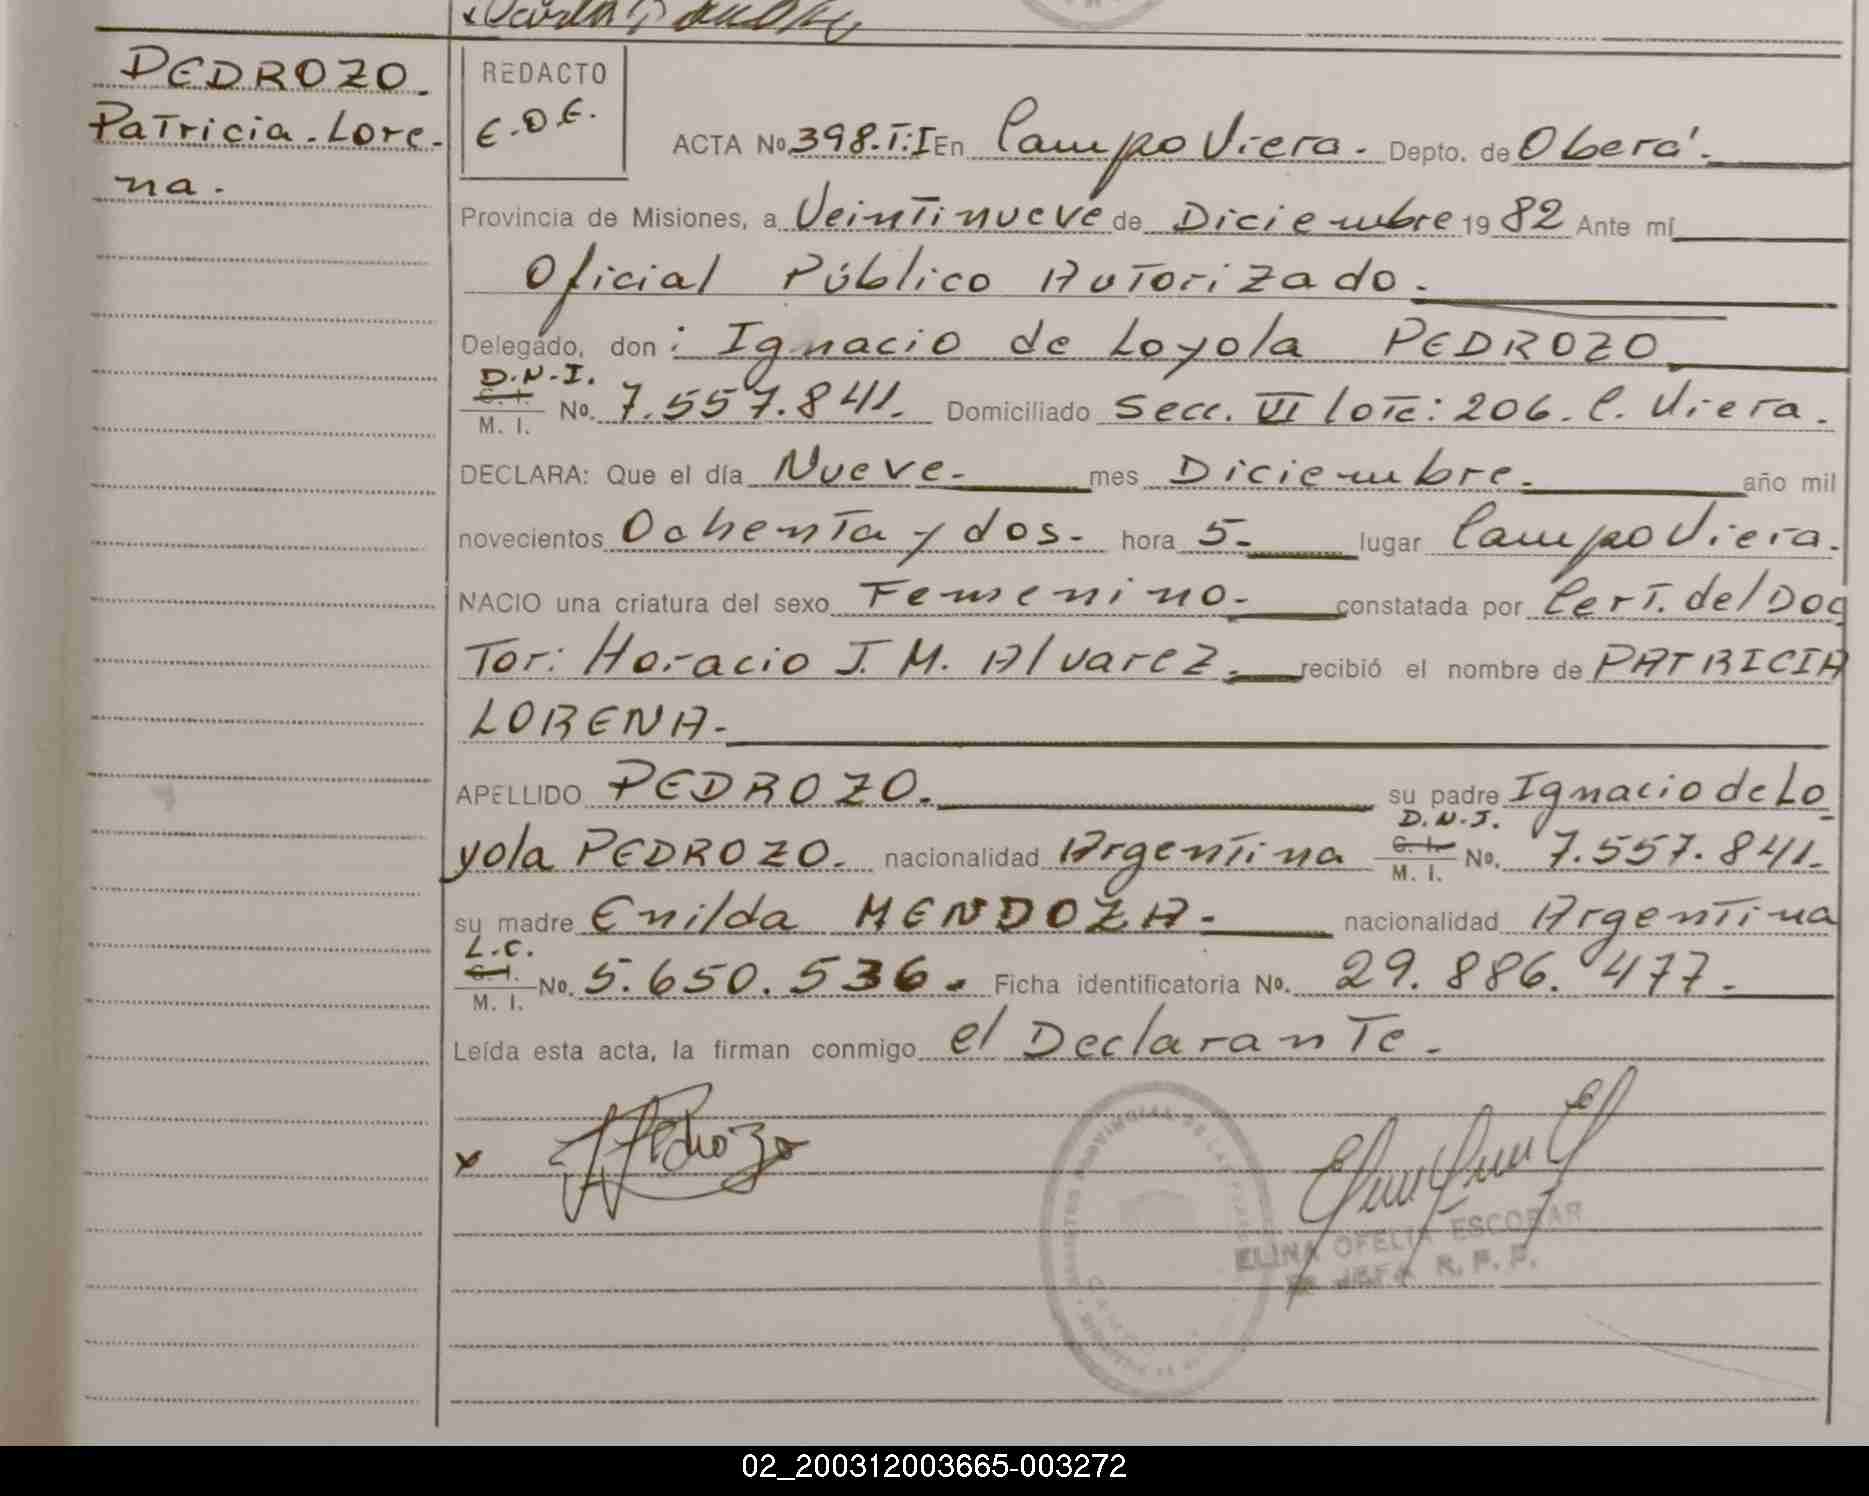 PEDROZO.
Patricia.Lore-
na.
REDACTO
E.O.E.
ACTA No. 398.T:I En Campo Viera. Depto. de Oberá.
Provincia de Misiones, a Veintinueve de Diciembre 19 82 Ante mí
Oficial Público Autorizado.
Delegado, don: Ignacio de Loyola PEDROZO
D.N.I.
C. I.
M. I.
No. 7.557.841. Domiciliado Secc. VI lote: 206. C. Viera.
DECLARA: Que el día Nueve. mes Diciembre. año mil
novecientos Ochenta y dos. hora 5. lugar Campo Viera.
NACIO una criatura del sexo Femenino. constatada por Cert. del Doc
Tor: Horacio J. M. Alvarez. recibió el nombre de PATRICIA
LORENA.
APELLIDO PEDROZO. su padre Ignacio de Lo
D.N.I.
yola PEDROZO. nacionalidad Argentina C. I. M. I. No. 7.557.841.
su madre Enilda MENDOZA. nacionalidad Argentina
L.C.
C. I.
M. I.
No. 5.650.536. Ficha identificatoria No. 29.886.477.
Leída esta acta, la firman conmigo el Declarante.
x Pedrozo
ELINA OFELIA ESCOBAR
JEFA R. P. P.
02_200312003665-003272